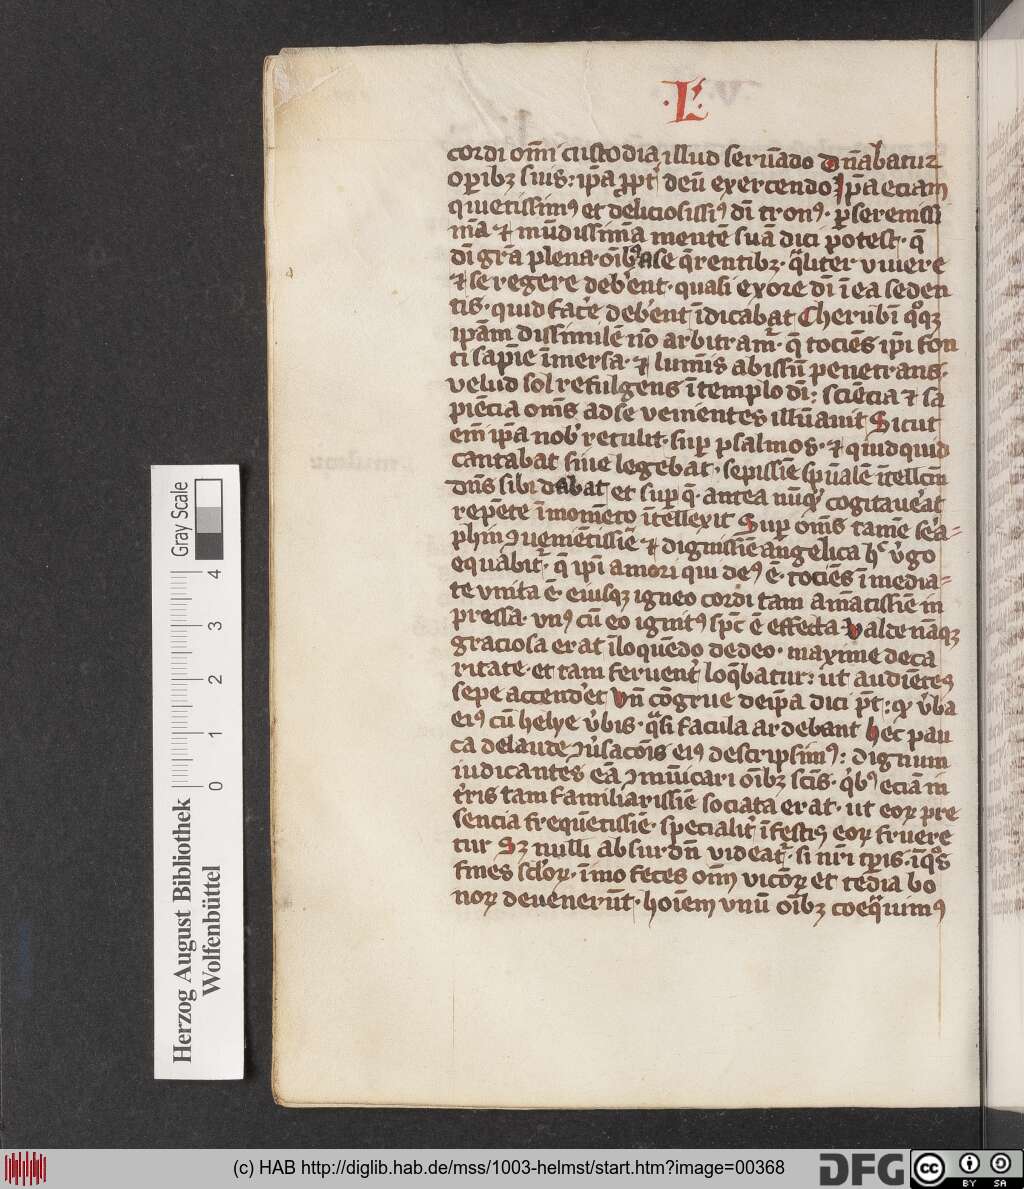 ·L·
cordi om̄i custodia illud seruādo dn̄abatur
op̄ibꝫ suis: ip̄a ꝓpt̕ deū exercendo Ip̄a eciam
quietissimꝰ et deliciosissiꝰ dī tronꝰ· p̱ serenissi
mā ⁊ mūdissimā mentē suā dici potest· q̄
dī grā plena· oībꝫ a se q̄rentibꝫ· qͣliter viuere
⁊ se regere deb̕ent· quasi ex ore dī ī ea seden
tis· quid fac̕e deb̕ent īdicabat Cherubī qͦqꝫ
ip̄am dissimilē nō arbitramᷣ· q̄ tociēs ip̄i fon
ti sapīe īmersa· ⁊ lumīs abissū penetrans·
velud sol refulgens ī templo dī: sciēcia ⁊ sa
piēcia om̄s ad se venientes illūauit Sicut
em̄ ip̄a nob̕ retulit· sup̱ psalmos· ⁊ quidquid
cantabat siue legebat· sepissīe sp̄ualē ītellcm̄
dn̄s sibi dabat et sup̱ q̄· antea nūqͣ cogitau̕at
repēte ī momēto ītellexit Sup̱ om̄s tamē sera-
phin ꝯuenīetissīe ⁊ dignissīe angelica hͨ v̕go
equabitᷣ· q̄ ip̄i amori qui deꝰ ē· tociēs īmedia-
te vnita ē· eiusqꝫ igneo cordi tam amātissīe in
pressa· vnꝰ cū eo ignitꝰ sp̄c ē effecta Valde nāqꝫ
graciosa erat ī loquēdo de deo· maxime de ca
ritate· et tam feruent̕ loq̄batur: ut audiētes
sepe accend̕et Vn̄ cōgrue de ip̄a dici p̄t: qꝫ v̕ba
eiꝰ cū helye v̕bis· qͣsi facula ardebant Hec pau
ca de laude ꝯu̕sacōis eiꝰ descripsimꝰ: dignum
iudicantes eā ꝯmūicari oībꝫ scīs· qͥbꝰ eciā in
t̕ris tam familiarissīe sociata erat· ut eoꝝ pre
sencia frequētissīe· specialit̕ ī festis eoꝝ fruere
tur Sꝫ nulli absurdū videatᷣ· si nr̄i tp̱ris· ī qͦs
fines sc̄loꝝ· īmo feces om̄ vicioꝝ et tedia bo
noꝝ deuenerūt· hoīem vnū oībꝫ coeqͣuimꝰ
Herzog August Bibliothek
Wolfenbüttel
0 1 2 3 4
Gray Scale
(c) HAB http://diglib.hab.de/mss/1003-helmst/start.htm?image=00368
DFG
cc
BY SA